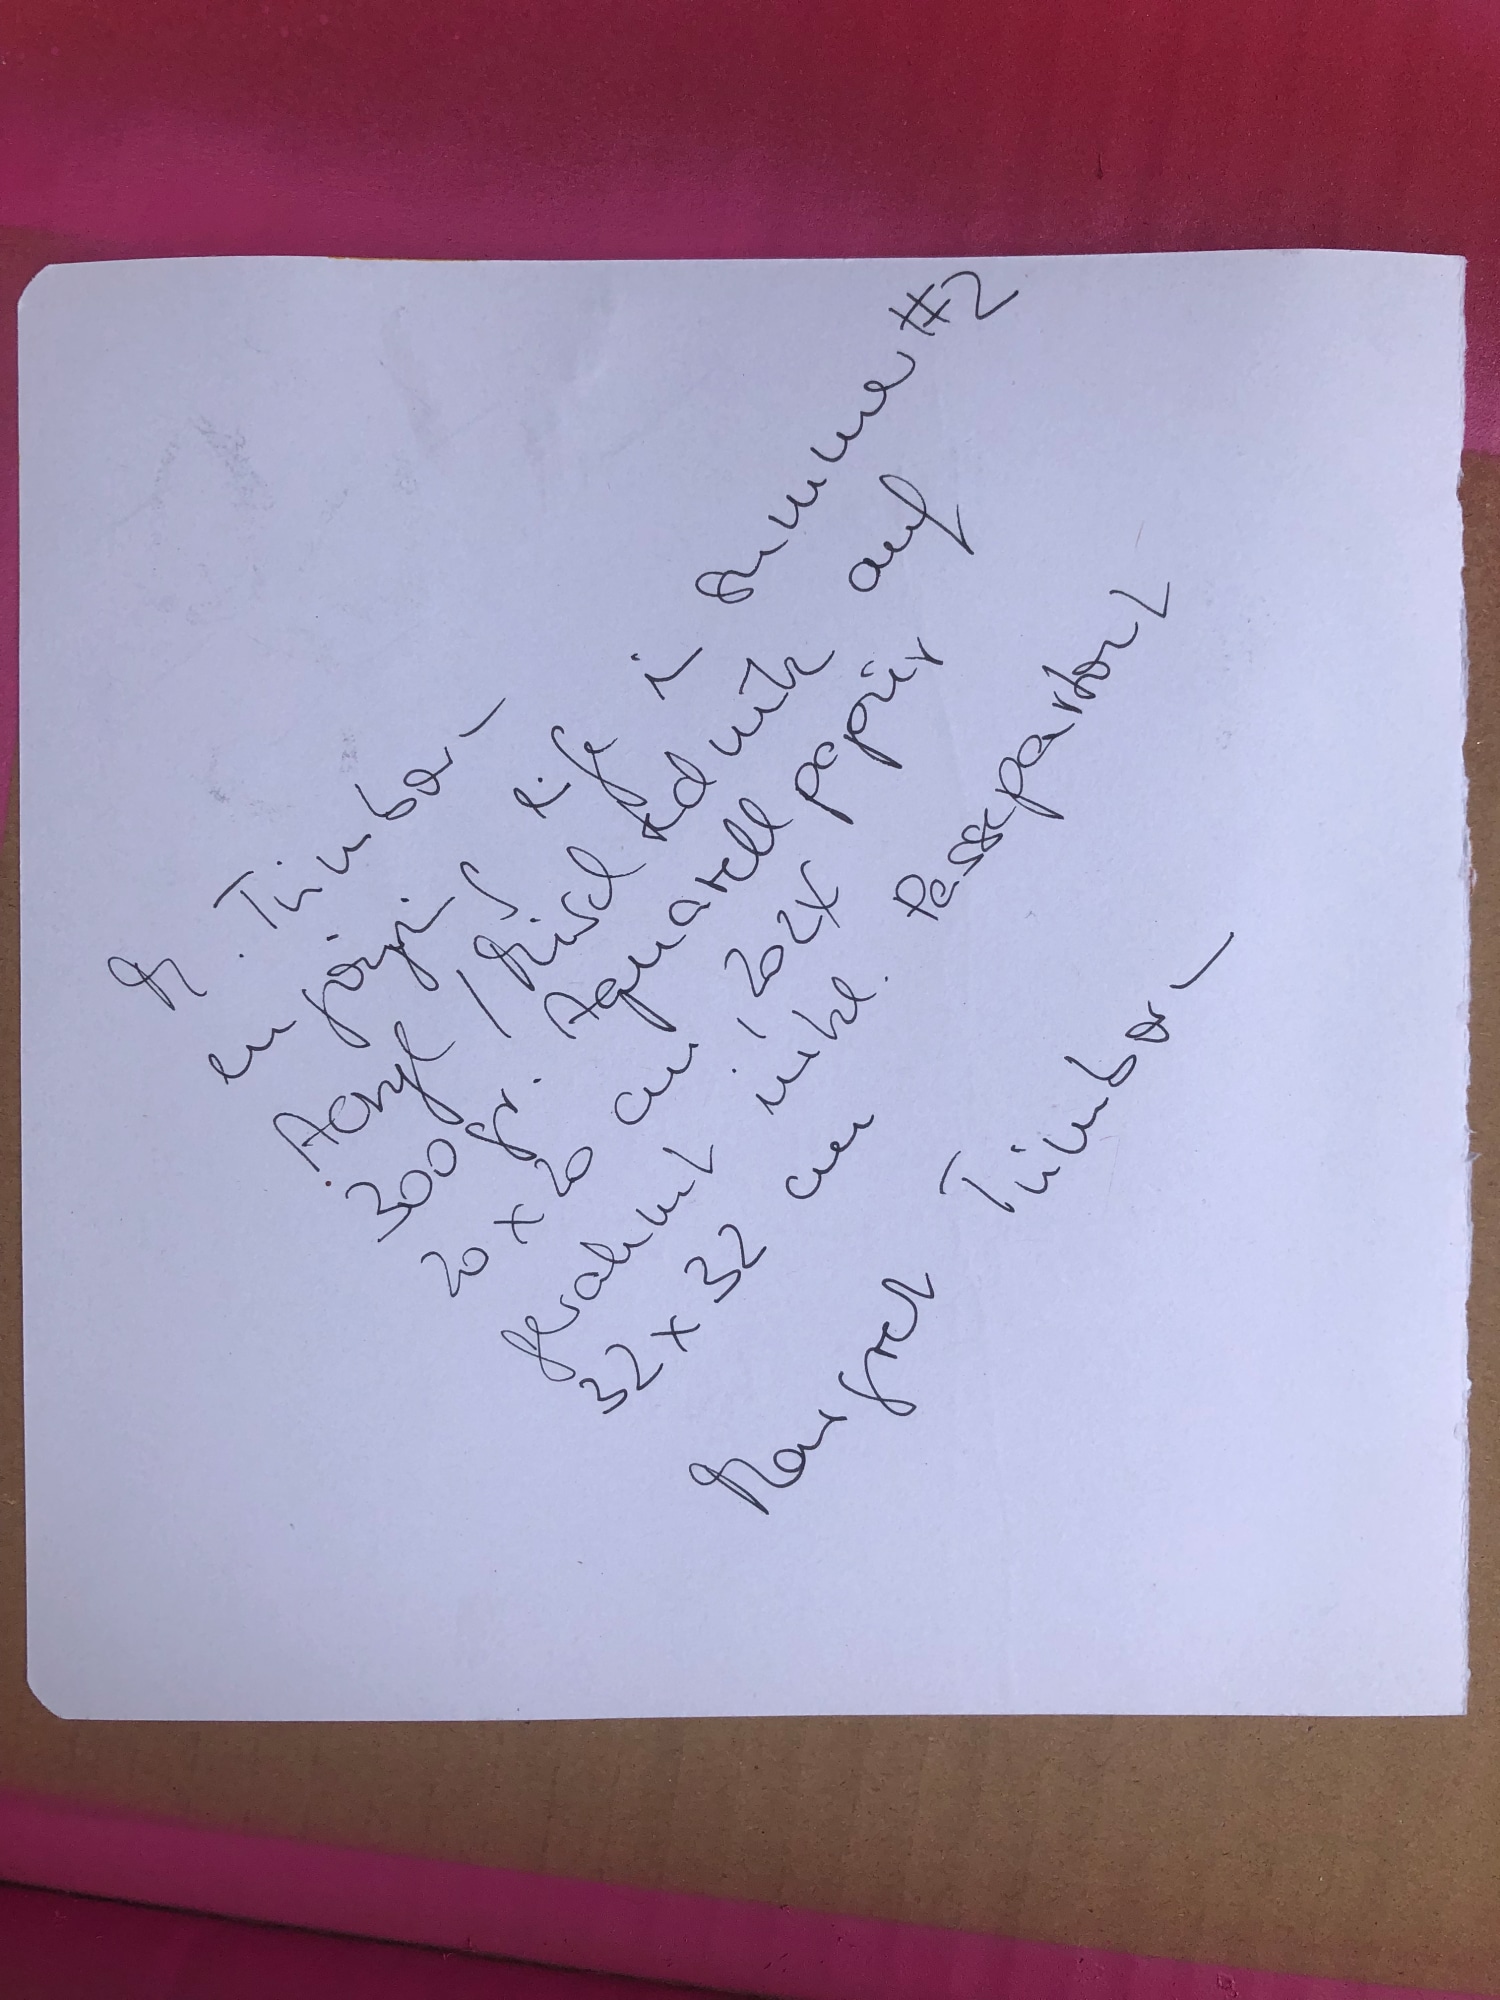 M. Trimborn
enjoying life in Summer #2
Acryl / Mischtechnik auf
300 gr. Aquarellpapier
20 x 20 cm, 202X
gerahmt inkl. Passepartout
32 x 32 cm
Margret Trimborn